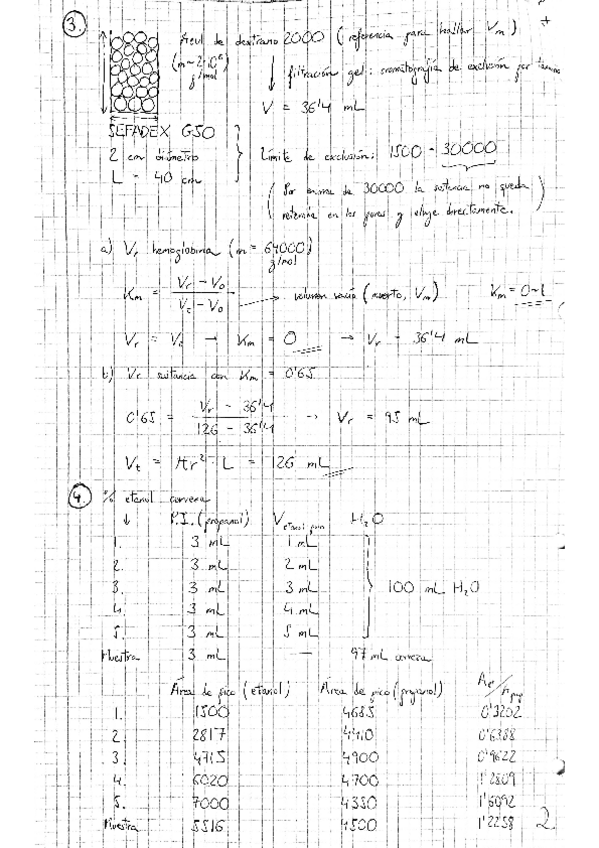 3.
Azul de dextrano 2000 (referencia para hallar Vm)
(m~2·10⁶ g/mol)
filtración gel: cromatografía de exclusión por
V = 36'4 mL
SEFADEX G50
2 cm diámetro
L = 40 cm
Límite de exclusión: 1500 - 30000
(Por encima de 30000 la sustancia no queda
retenida en los poros y eluye directamente.)
a) Vr hemoglobina (m = 64000 g/mol)
Km = (Vr - Vo) / (Vt - Vo) → volumen vacío (muerto, Vm) Km = 0-1
Vr = Vo → Km = 0 → Vr = 36'4 mL
b) Vr sustancia con Km = 0'65
0'65 = (Vr - 36'4) / (126 - 36'4) → Vr = 95 mL
Vt = πr² · L = 126 mL
4. % etanol cerveza
↓ P.I. (propanol) V etanol H₂O
1. 3 mL 1 mL
2. 3 mL 2 mL
3. 3 mL 3 mL 100 mL H₂O
4. 3 mL 4 mL
5. 3 mL 5 mL
Muestra 3 mL — 97 mL cerveza
Área de pico (etanol) Área de pico (propanol) Ae/Aprop
1. 1500 4685 0'3202
2. 2817 4410 0'6388
3. 4715 4900 0'9622
4. 6020 4700 1'2809
5. 7000 4350 1'6092
Muestra 5516 4500 1'2258
2